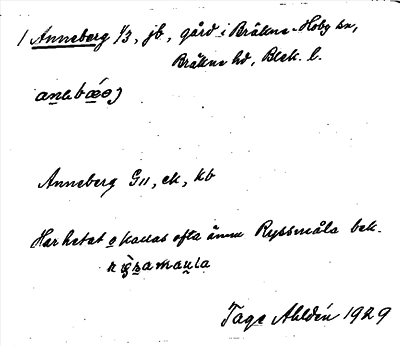 / Anneberg 1/3, jb, gård i Bräkne-Hoby sn,
Bräkne hd, Blek. l.
Anneberg G11, ek, kb
Har hetat o kallas ofta ännu Ryssmåla bek.
Tage Ahldén 1929